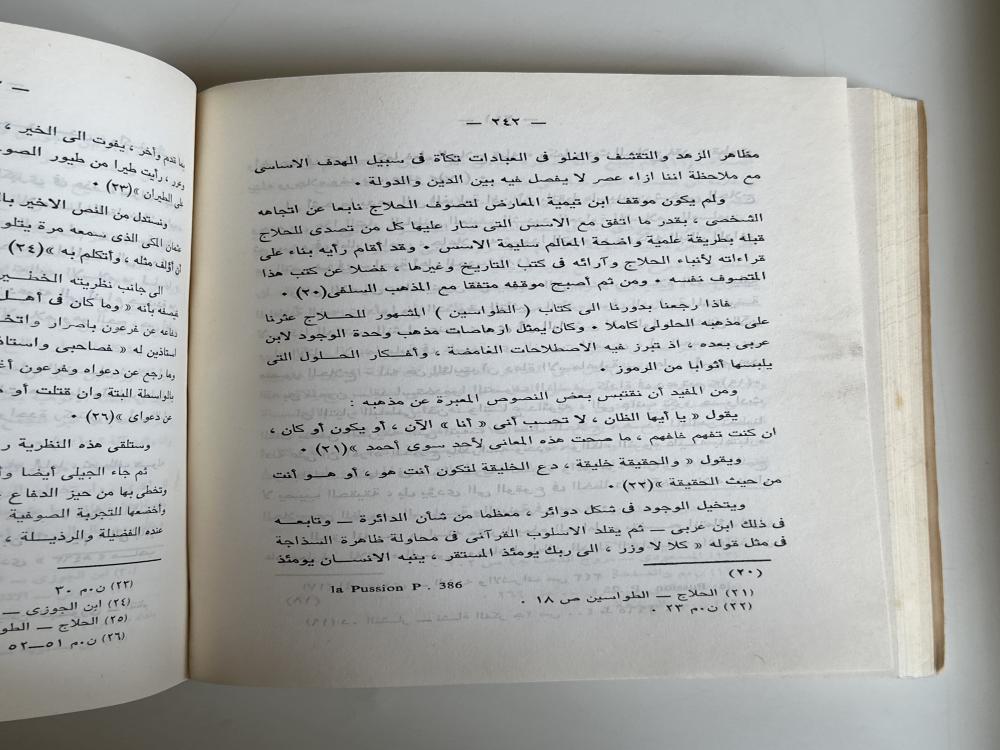 — ٢٤٢ —
مظاهر الزهد والتقشف والغلو فى العبادات تكأة فى سبيل الهدف الاساسى
مع ملاحظة اننا ازاء عصر لا يفصل فيه بين الدين والدولة ٠
ولم يكون موقف ابن تيمية المعارض لتصوف الحلاج نابعا عن اتجاهه
الشخصى ، بقدر ما اتفق مع الاسس التى سار عليها كل من تصدى للحلاج
قبله بطريقة علمية واضحة المعالم سليمة الاسس ٠ وقد أقام رأيه بناء على
قراءاته لأنباء الحلاج وآرائه فى كتب التاريخ وغيرها ، فضلا عن كتب هذا
المتصوف نفسه ٠ ومن ثم أصبح موقفه متفقا مع المذهب السلفى(٢٠) ٠
فاذا رجعنا بدورنا الى كتاب ( الطواسين ) المشهور للحلاج عثرنا
على مذهبه الحلولى كاملا ٠ وكان يمثل ارهاصات مذهب وحدة الوجود لابن
عربى بعده ، اذ تبرز فيه الاصطلاحات الغامضة ، وأفكار الحلول التى
يلبسها أثوابا من الرموز ٠
ومن المفيد أن نقتبس بعض النصوص المعبرة عن مذهبه :
يقول « يا أيها الظان ، لا تحسب أنى « أنا » الآن ، أو يكون أو كان ،
ان كنت تفهم فافهم ، ما صحت هذه المعانى لأحد سوى أحمد »(٢١) ٠
ويقول « والحقيقة خليقة ، دع الخليقة لتكون أنت هو ، أو هو أنت
من حيث الحقيقة »(٢٢) ٠
ويتخيل الوجود فى شكل دوائر ، معظما من شأن الدائرة — وتابعه
فى ذلك ابن عربى — ثم يقلد الاسلوب القرآنى فى محاولة ظاهرة السذاجة
فى مثل قوله « كلا لا وزر ، الى ربك يومئذ المستقر ، ينبه الانسان يومئذ
(٢٠)
la Pussion P. 386
(٢١) الحلاج — الطواسين ص ١٨ ٠
(٢٢) ن٠م ٢٣ ٠
بما قدم وأخر ، يفوت الى الخير ،
وغرد ، رأيت طيرا من طيور الصو
على الطيران »(٢٣) ٠
ونستدل من النص الاخير با
عثمان المكى الذى سمعه مرة يتلو
أن أؤلف مثله ، وأتكلم به »(٢٤)
الى جانب نظريته الخطير
فيصفه بأنه « وما كان فى أهل
دفاعه عن فرعون باصرار واتخ
استاذين له « فصاحبى واستاذ
وما رجع عن دعواه وفرعون أخ
بالواسطة البتة وان قتلت أو
عن دعواى »(٢٦) ٠
وستلقى هذه النظرية ر
ثم جاء الجيلى أيضا وأ
وتخطى بها من حيز الدفاع
وأخضعها للتجربة الصوفية
عنده الفضيلة والرذيلة ،
(٢٣) ن٠م ٣٠
(٢٤) ابن الجوزى —
(٢٥) الحلاج — الطو
(٢٦) ن٠م ٥١—٥٢